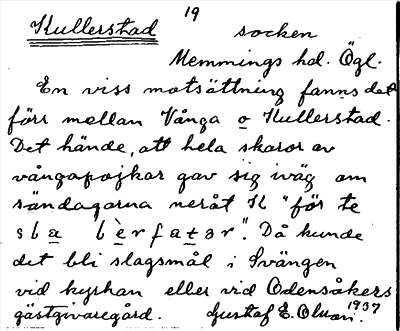 19
Kullerstad socken
Memmings hd. Ögl.
En viss motsättning fanns det
förr mellan Vånga o Kullerstad.
Det hände, att hela skaror av
vångapojkar gav sig iväg om
söndagarna neråt K "för te
sba bèrfatər". Då kunde
det bli slagsmål i Svängen
vid kyrkan eller vid Odensåkers
gästgivaregård. Gustaf E. Olson. 1937